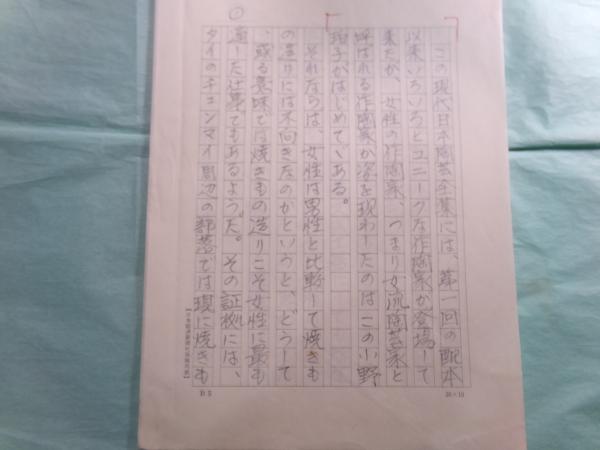 この現代日本陶芸全集には、第一回の配本
以来いろいろとユニークな作陶家が登場して
来たが、女性の作陶家、つまり女流陶芸家と
呼ばれる作陶家が姿を現わしたのはこの小野
珀子がはじめてである。
それならば、女性は男性と比較して焼きも
の造りには不向きなのかというと、どうして
、或る意味では焼きもの造りこそ女性に最も
適した仕事でもあるようだ。その証拠には、
タイのチェンマイ周辺の部落では現に焼きも
B5
20×10